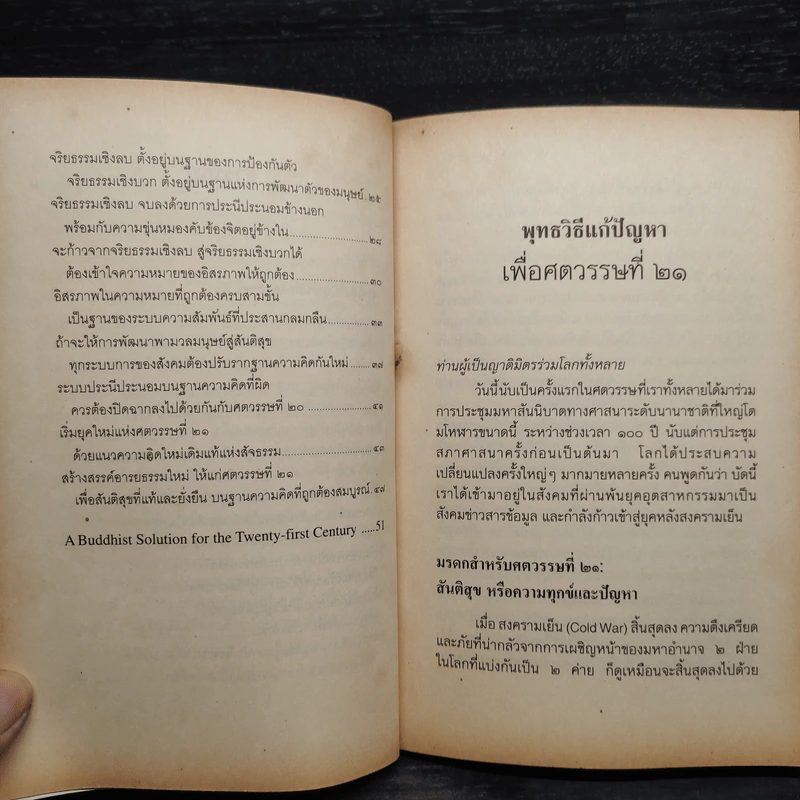 จริยธรรมเชิงลบ ตั้งอยู่บนฐานของการป้องกันตัว
จริยธรรมเชิงบวก ตั้งอยู่บนฐานแห่งการพัฒนาตัวของมนุษย์.๒๕
จริยธรรมเชิงลบ จบลงด้วยการประนีประนอมข้างนอก
พร้อมกับความขุ่นหมองคับข้องจิตอยู่ข้างใน....................๒๘
จะก้าวจากจริยธรรมเชิงลบ สู่จริยธรรมเชิงบวกได้
ต้องเข้าใจความหมายของอิสรภาพให้ถูกต้อง....................๓๐
อิสรภาพในความหมายที่ถูกต้องครบสามขั้น
เป็นฐานของระบบความสัมพันธ์ที่ประสานกลมกลืน............๓๓
ถ้าจะให้การพัฒนาพามวลมนุษย์สู่สันติสุข
ทุกระบบการของสังคมต้องปรับรากฐานความคิดกันใหม่......๓๗
ระบบประนีประนอมบนฐานความคิดที่ผิด
ควรต้องปิดฉากลงไปด้วยกันกับศตวรรษที่ ๒๐ .................๔๑
เริ่มยุคใหม่แห่งศตวรรษที่ ๒๑
ด้วยแนวความคิดใหม่เดิมแท้แห่งสัจธรรม.......................๔๓
สร้างสรรค์อารยธรรมใหม่ ให้แก่ศตวรรษที่ ๒๑
เพื่อสันติสุขที่แท้และยั่งยืน บนฐานความคิดที่ถูกต้องสมบูรณ์.๔๗
A Buddhist Solution for the Twenty-first Century .....51
พุทธวิธีแก้ปัญหา
เพื่อศตวรรษที่ ๒๑
ท่านผู้เป็นญาติมิตรร่วมโลกทั้งหลาย
วันนี้นับเป็นครั้งแรกในศตวรรษที่เราทั้งหลายได้มาร่วม
การประชุมมหาสันนิบาตทางศาสนาระดับนานาชาติที่ใหญ่โต
มโหฬารขนาดนี้ ระหว่างช่วงเวลา ๑๐๐ ปี นับแต่การประชุม
สภาศาสนาครั้งก่อนเป็นต้นมา โลกได้ประสบความ
เปลี่ยนแปลงครั้งใหญ่ๆ มากมายหลายครั้ง คนพูดกันว่า บัดนี้
เราได้เข้ามาอยู่ในสังคมที่ผ่านพ้นยุคอุตสาหกรรมมาเป็น
สังคมข่าวสารข้อมูล และกำลังก้าวเข้าสู่ยุคหลังสงครามเย็น
มรดกสำหรับศตวรรษที่ ๒๑:
สันติสุข หรือความทุกข์และปัญหา
เมื่อ สงครามเย็น (Cold War) สิ้นสุดลง ความตึงเครียด
และภัยที่น่ากลัวจากการเผชิญหน้าของมหาอำนาจ ๒ ฝ่าย
ในโลกที่แบ่งกันเป็น ๒ ค่าย ก็ดูเหมือนจะสิ้นสุดลงไปด้วย